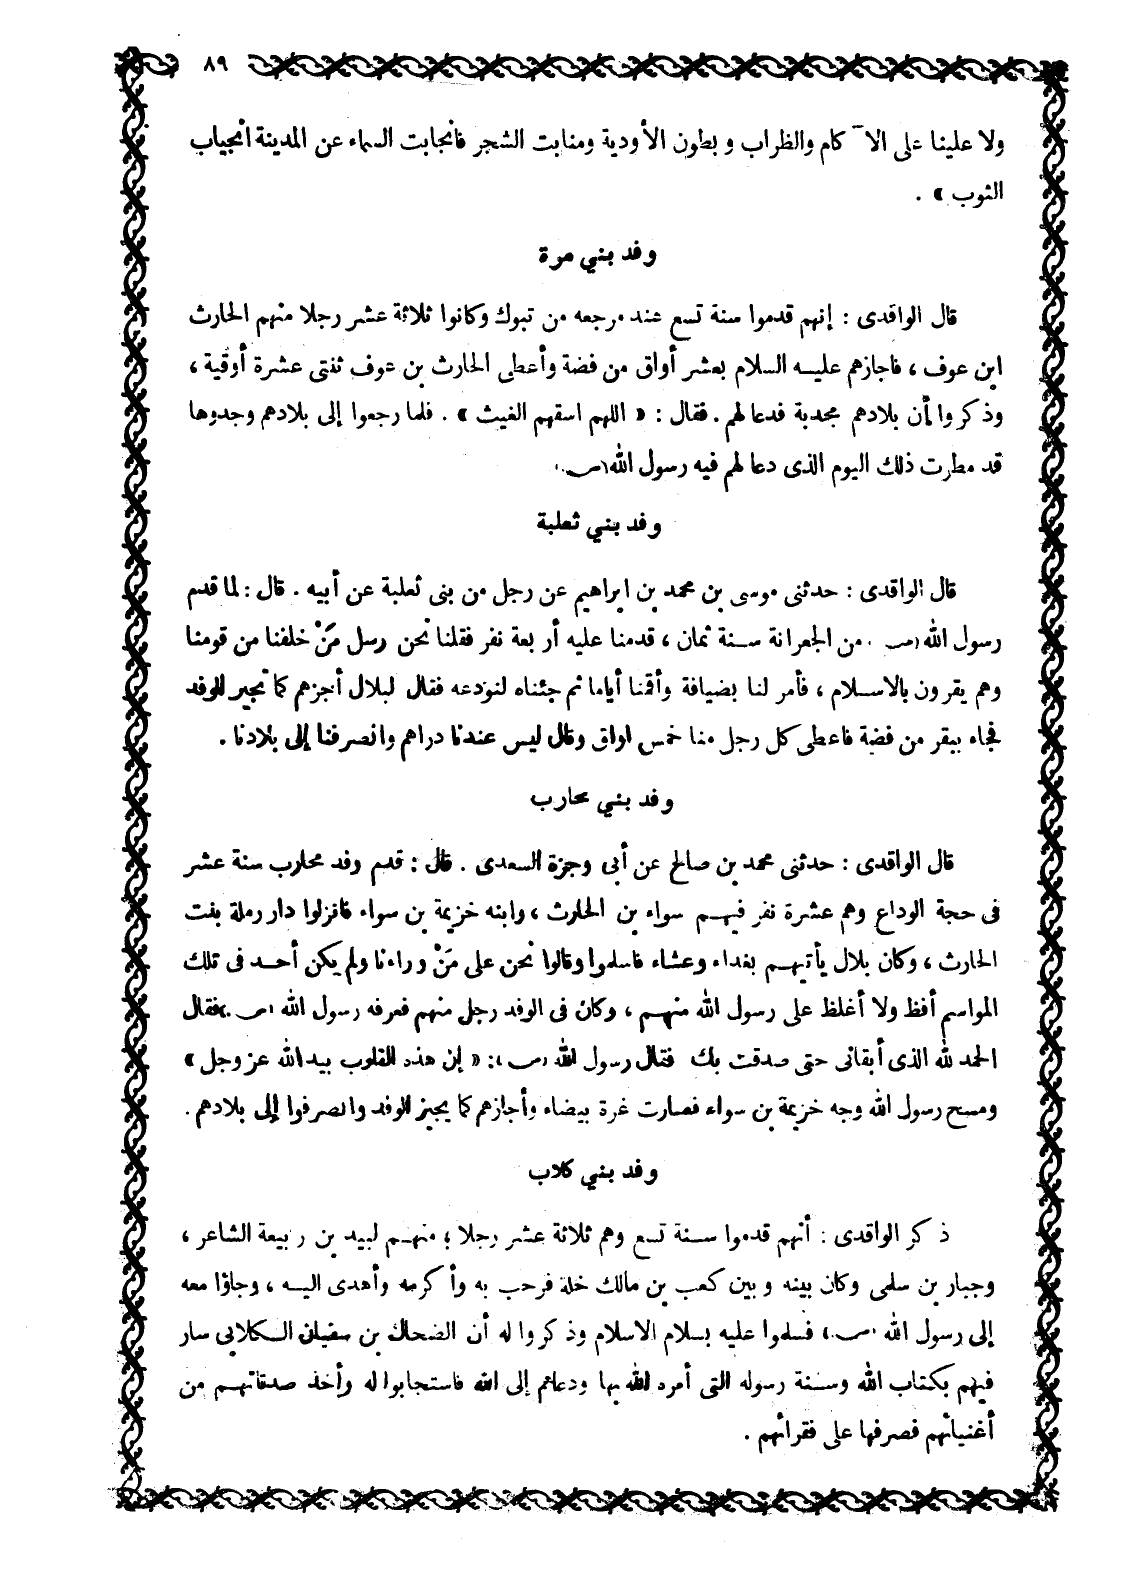 ٨٩
ولا علينا على الآكام والظراب وبطون الأودية ومنابت الشجر فانجابت السماء عن المدينة انجياب
الثوب » .
وفد بني مرة
قال الواقدى : إنهم قدموا سنة تسع عند مرجعه من تبوك وكانوا ثلاثة عشر رجلا منهم الحارث
ابن عوف ، فاجازهم عليه السلام بعشر أواق من فضة وأعطى الحارث بن عوف ثنتى عشرة أوقية ،
وذكروا أن بلادهم مجدبة فدعا لهم . فقال : « اللهم اسقهم الغيث » . فلما رجعوا إلى بلادهم وجدوها
قد مطرت ذلك اليوم الذى دعا لهم فيه رسول الله (ص)
وفد بني ثعلبة
قال الواقدى : حدثنى موسى بن محمد بن ابراهيم عن رجل من بنى ثعلبة عن أبيه . قال : لما قدم
رسول الله (ص) من الجعرانة سنة ثمان ، قدمنا عليه أربعة نفر فقلنا نحن رسل مَنْ خلفنا من قومنا
وهم يقرون بالاسلام ، فأمر لنا بضيافة وأقمنا أياما ثم جئناه لنودعه فقال لبلال أجزهم كما تجيز للوفد
فجاء ببقر من فضة فاعطى كل رجل منا خمس اواق وقال ليس عندنا دراهم وانصرفنا إلى بلادنا .
وفد بني محارب
قال الواقدى : حدثنى محمد بن صالح عن أبى وجزة السعدى . قال : قدم وفد محارب سنة عشر
فى حجة الوداع وهم عشرة نفر فيهم سواء بن الحارث ، وابنه خزيمة بن سواء فانزلوا دار رملة بنت
الحارث ، وكان بلال يأتيهم بغداء وعشاء فاسلموا وقالوا نحن على مَنْ وراءنا ولم يكن أحد فى تلك
المواسم أفظ ولا أغلظ على رسول الله منهم ، وكان فى الوفد رجل منهم فعرفه رسول الله (ص) فقال
الحمد لله الذى أبقانى حتى صدقت بك فقال رسول الله (ص) : « إن هذه القلوب بيد الله عز وجل »
ومسح رسول الله وجه خزيمة بن سواء فصارت غرة بيضاء وأجازهم كما يجيز الوفد وانصرفوا إلى بلادهم .
وفد بني كلاب
ذكر الواقدى : أنهم قدموا سنة تسع وهم ثلاثة عشر رجلا ؛ منهم لبيد بن ربيعة الشاعر ،
وجبار بن سلمى وكان بينه وبين كعب بن مالك خلة فرحب به وأكرمه وأهدى اليه ، وجاؤا معه
إلى رسول الله (ص) ، فسلموا عليه بسلام الاسلام وذكروا له أن الضحاك بن سفيان الكلابى سار
فيهم بكتاب الله وسنة رسوله التى أمره الله بها ودعاهم إلى الله فاستجابوا له وأخذ صدقاتهم من
أغنيائهم فصرفها على فقرائهم .